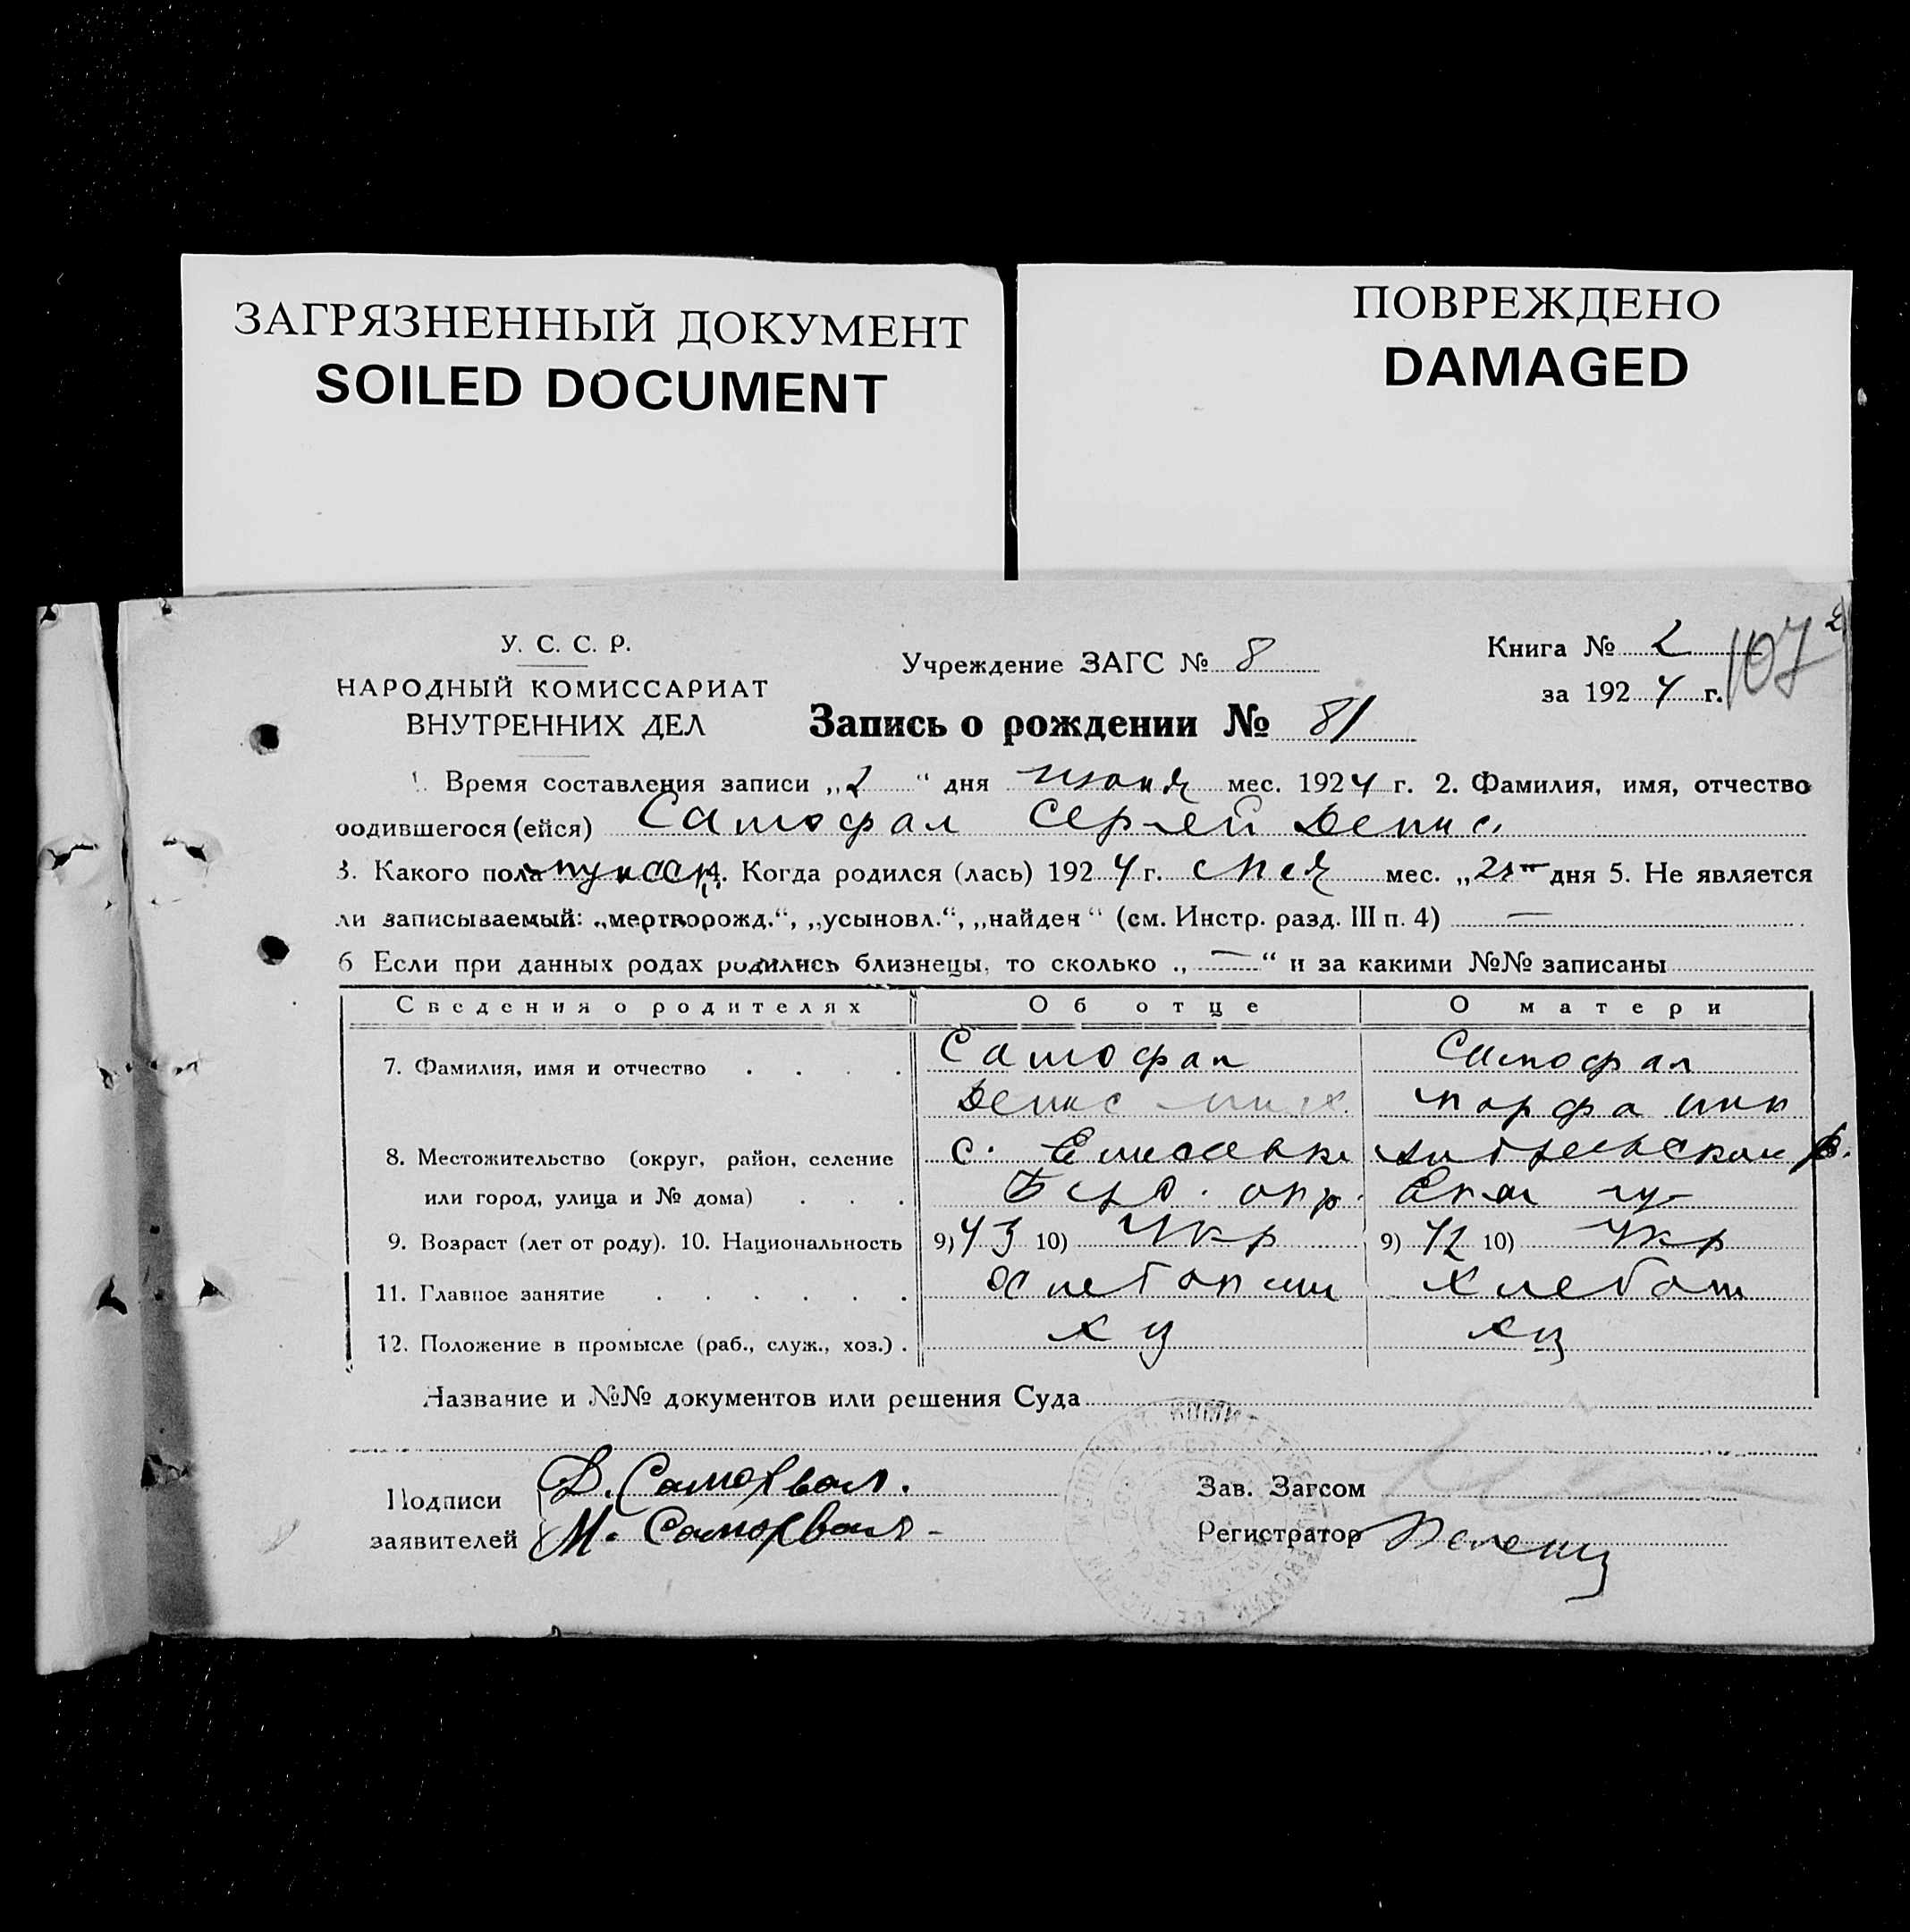 ЗАГРЯЗНЕННЫЙ ДОКУМЕНТ
SOILED DOCUMENT
ПОВРЕЖДЕНО
DAMAGED
У. С. С. Р.
НАРОДНЫЙ КОМИССАРИАТ
ВНУТРЕННИХ ДЕЛ
Учреждение ЗАГС № 8
Книга № 2
107
за 1924 г.
Запись о рождении № 81
1. Время составления записи „2“ дня июня мес. 1924 г. 2. Фамилия, имя, отчество
родившегося (ейся) Самофал Сергей Денис.
3. Какого пола Когда родился (лась) 1924 г. мая мес. „ дня 5. Не является
ли записываемый: „мертворожд.“, „усыновл.“, „найден“ (см. Инстр. разд. III п. 4) —
6 Если при данных родах родились близнецы, то сколько „—“ и за какими №№ записаны
Сведения о родителях Об отце О матери
7. Фамилия, имя и отчество Самофал Самофал
Денис Мих.
8. Местожительство (округ, район, селение с. Елисеевка
или город, улица и № дома) Берд. окр. Екат. гу-
9. Возраст (лет от роду). 10. Национальность 9) 43 10) Укр 9) 42 10) Укр
11. Главное занятие Хлебопаш Хлебопаш
12. Положение в промысле (раб., служ., хоз.) хоз хоз
Название и №№ документов или решения Суда
Подписи Д. Самохвал.
заявителей М. Самохвал-
Зав. Загсом
Регистратор